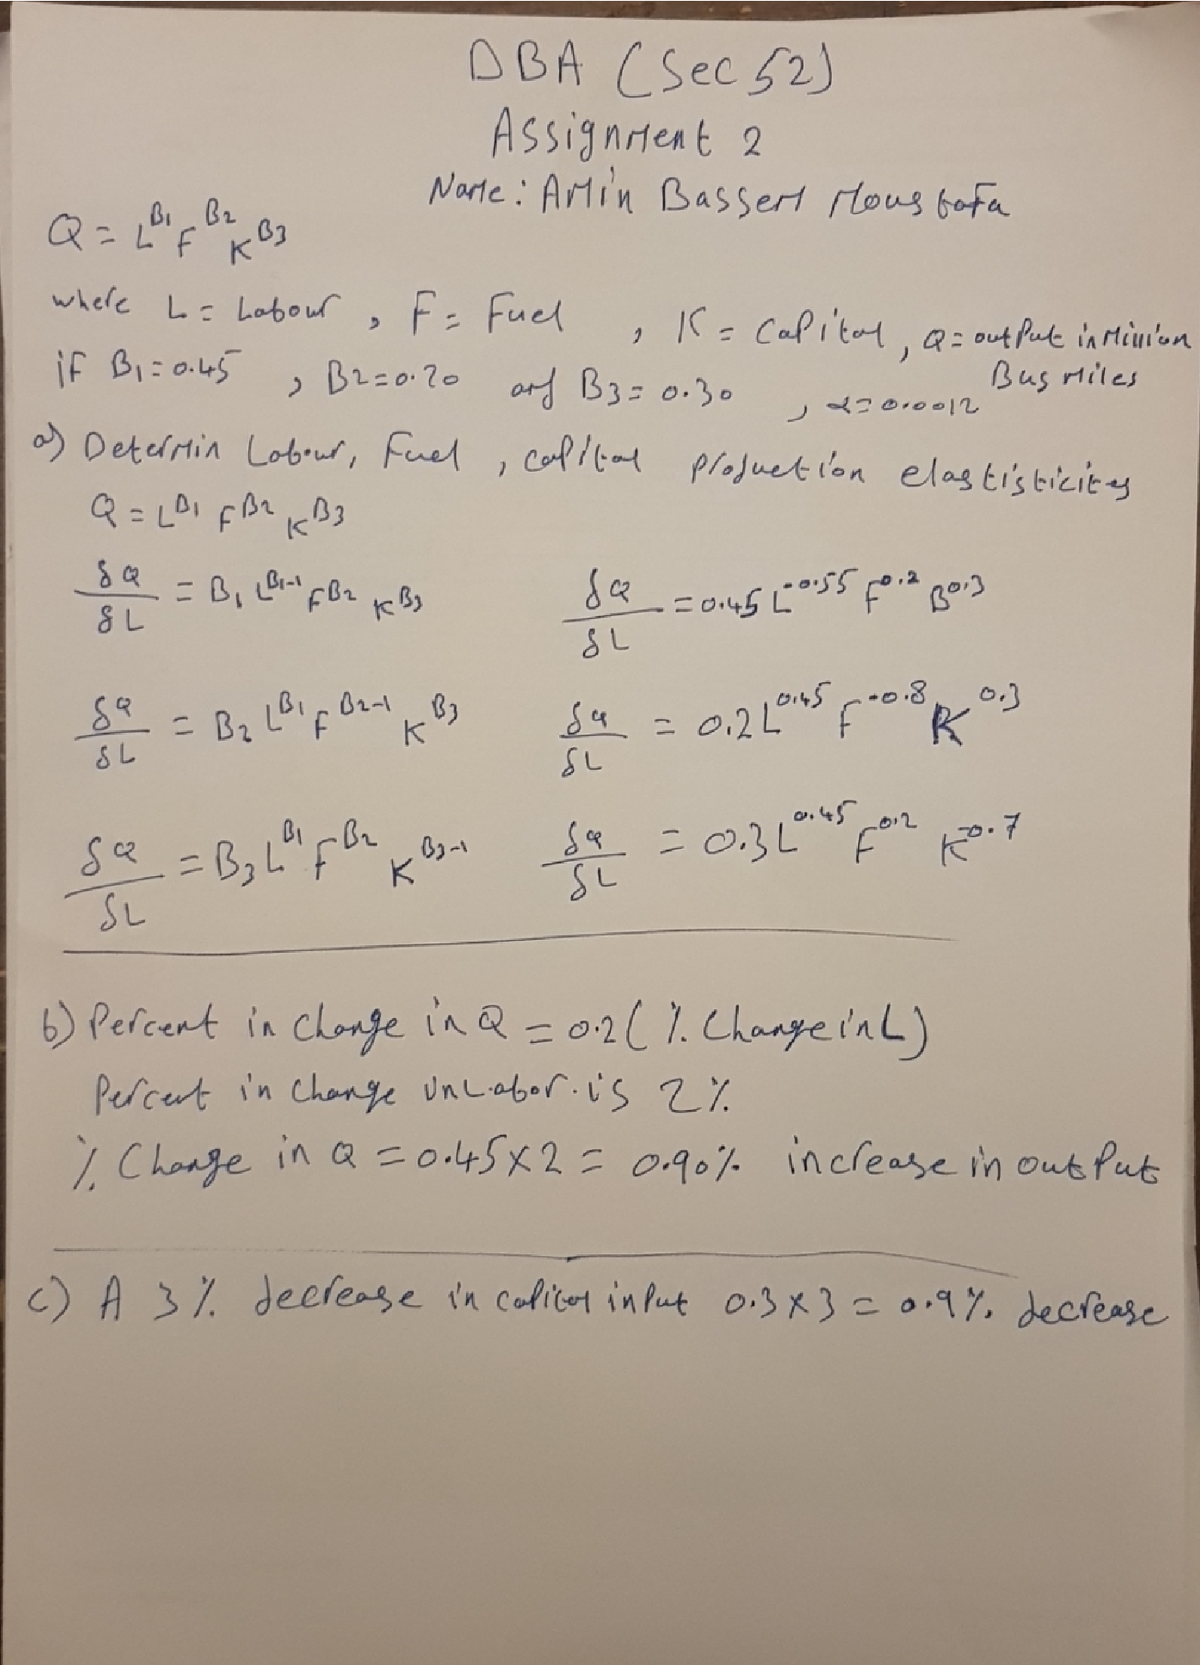 DBA (Sec 52)
Assignment 2
Name: Amin Bassem Moustafa
Q = L^B1 F^B2 K^B3
where L = Labour, F = Fuel, K = Capital, Q = output in Million Bus Miles
if B1 = 0.45, B2 = 0.20 and B3 = 0.30, α = 0.0012
a) Determin Labour, Fuel, capital production elastisticitys
Q = L^B1 F^B2 K^B3
δQ/δL = B1 L^B1-1 F^B2 K^B3 δQ/δL = 0.45 L^-0.55 F^0.2 B^0.3
δQ/δL = B2 L^B1 F^B2-1 K^B3 δQ/δL = 0.2 L^0.45 F^-0.8 K^0.3
δQ/δL = B3 L^B1 F^B2 K^B3-1 δQ/δL = 0.3 L^0.45 F^0.2 K^-0.7
b) Percent in change in Q = 0.2 (% Change in L)
Percent in change in Labor is 2%
% Change in Q = 0.45 x 2 = 0.90% increase in output
c) A 3% decrease in capital input 0.3 x 3 = 0.9% decrease